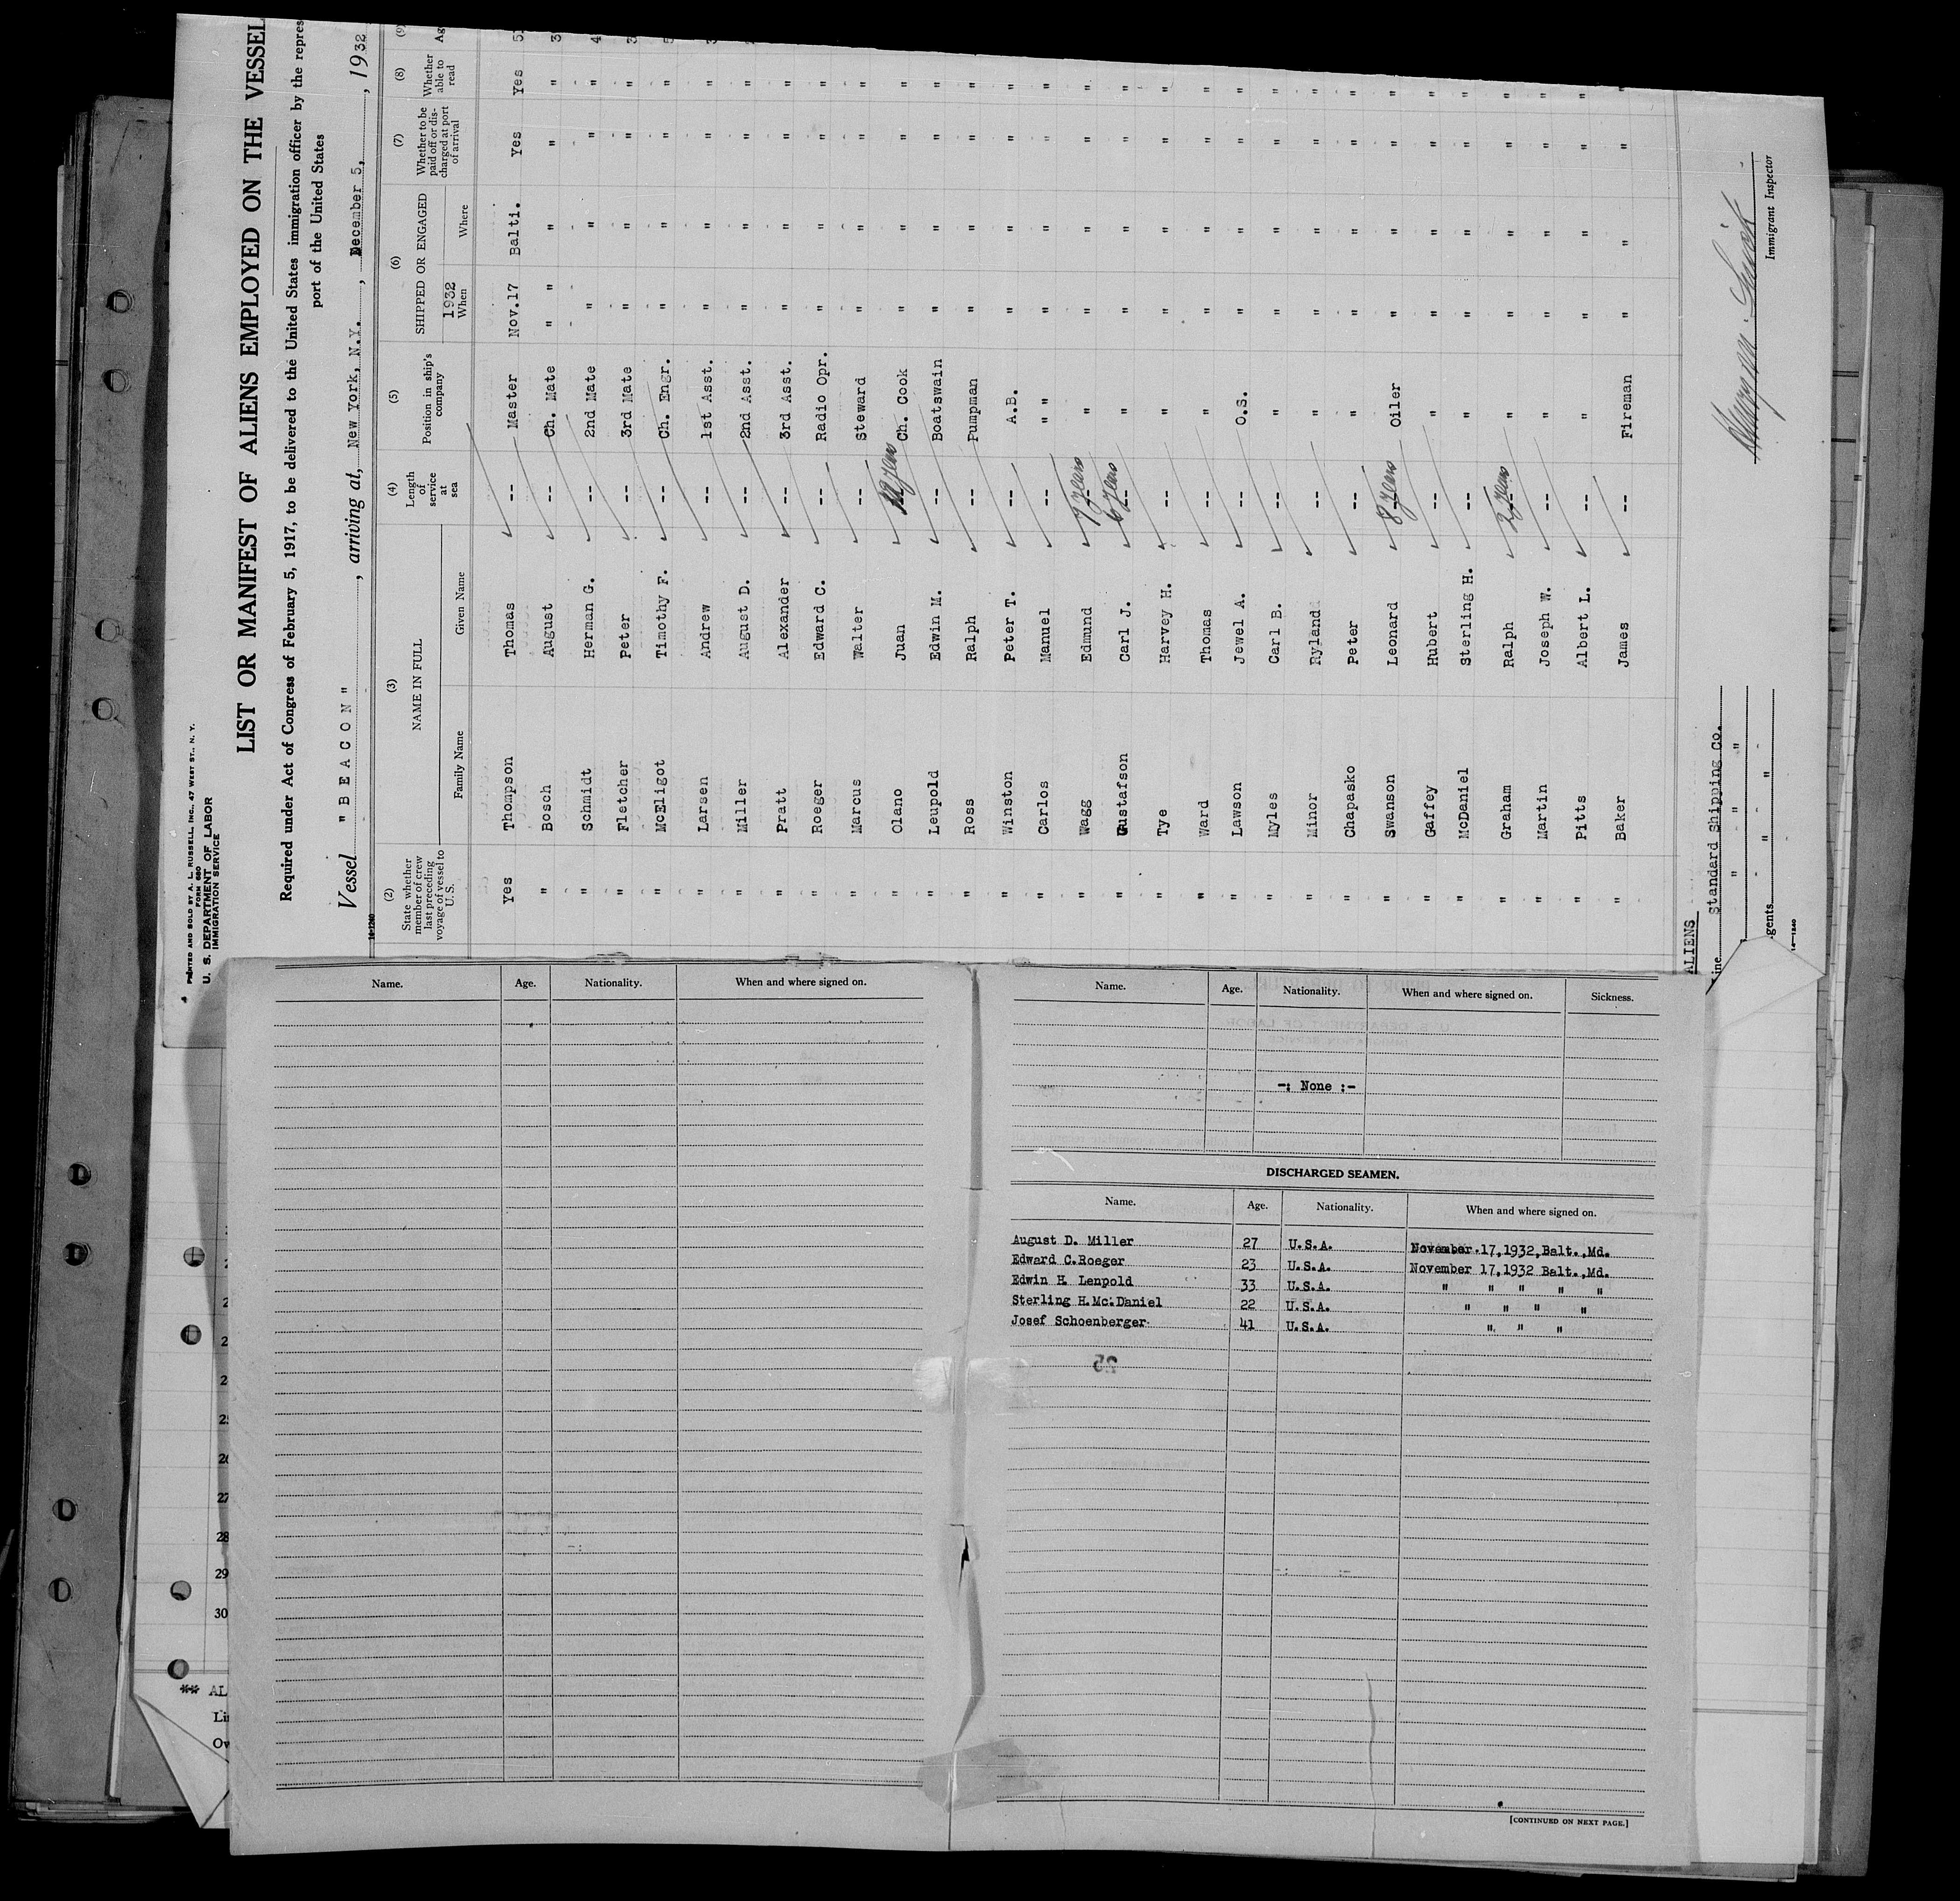 4 PRINTED AND SOLD BY A. L. RUSSELL, INC., 47 WEST ST., N. Y.
FORM 680
U. S. DEPARTMENT OF LABOR
IMMIGRATION SERVICE
LIST OR MANIFEST OF ALIENS EMPLOYED ON THE VESSEL
Required under Act of Congress of February 5, 1917, to be delivered to the United States immigration officer by the repres
port of the United States
Vessel "BEACON", arriving at, New York, N.Y., December 5, 1932
14-1240
(2) (3) (4) (5) (6) (7) (8) (9)
State whether member of crew last preceding voyage of vessel to U. S. NAME IN FULL Length of service at sea Position in ship's company SHIPPED OR ENGAGED Whether to be paid off or discharged at port of arrival Whether able to read Ag
Family Name Given Name 1932 When Where
Yes Thompson Thomas -- Master Nov.17 Balti. Yes Yes
" Bosch August -- Ch. Mate " " " " "
" Schmidt Herman G. -- 2nd Mate " " " "
" Fletcher Peter -- 3rd Mate " " " "
" McEligot Timothy F. -- Ch. Engr. " " " "
" Larsen Andrew -- 1st Asst. " " " "
" Miller August D. -- 2nd Asst. " " " "
" Pratt Alexander -- 3rd Asst. " " " "
" Roeger Edward C. -- Radio Opr. " " " "
" Marcus Walter -- Steward " " " "
" Olano Juan Ch. Cook " " " "
" Leupold Edwin M. -- Boatswain " " " "
" Ross Ralph -- Pumpman " " " "
" Winston Peter T. -- A.B. " " " "
" Carlos Manuel -- " " " " " "
" Wagg Edmund 7 years " " " " "
" Gustafson Carl J. 6 years " " " " "
" Tye Harvey H. -- " " " " "
" Ward Thomas -- " " " " "
" Lawson Jewel A. -- O.S. " " " "
" Myles Carl B. -- " " " " "
" Minor Ryland -- " " " " "
" Chapasko Peter -- " " " " "
" Swanson Leonard 8 years Oiler " " " "
" Gaffey Hubert -- " " " " "
" McDaniel Sterling H. -- " " " " "
" Graham Ralph 2 years " " " " "
" Martin Joseph W. -- " " " " "
" Pitts Albert L. -- " " " " "
" Baker James -- Fireman " " " "
ALIENS
ine Standard Shipping Co.
" " "
gents " " "
14-1240
Immigrant Inspector
Name. Age. Nationality. When and where signed on.
Name. Age. Nationality. When and where signed on. Sickness.
-: None :-
DISCHARGED SEAMEN.
Name. Age. Nationality. When and where signed on.
August D. Miller 27 U.S.A. November 17,1932,Balt.,Md.
Edward C.Roeger 23 U.S.A. November 17,1932 Balt.,Md.
Edwin H. Lenpold 33 U.S.A. " " " " "
Sterling H.Mc.Daniel 22 U.S.A. " " " "
Josef Schoenberger 41 U.S.A. " " "
[CONTINUED ON NEXT PAGE.]
25
26
27
28
29
30
** AL
Lin
Ow